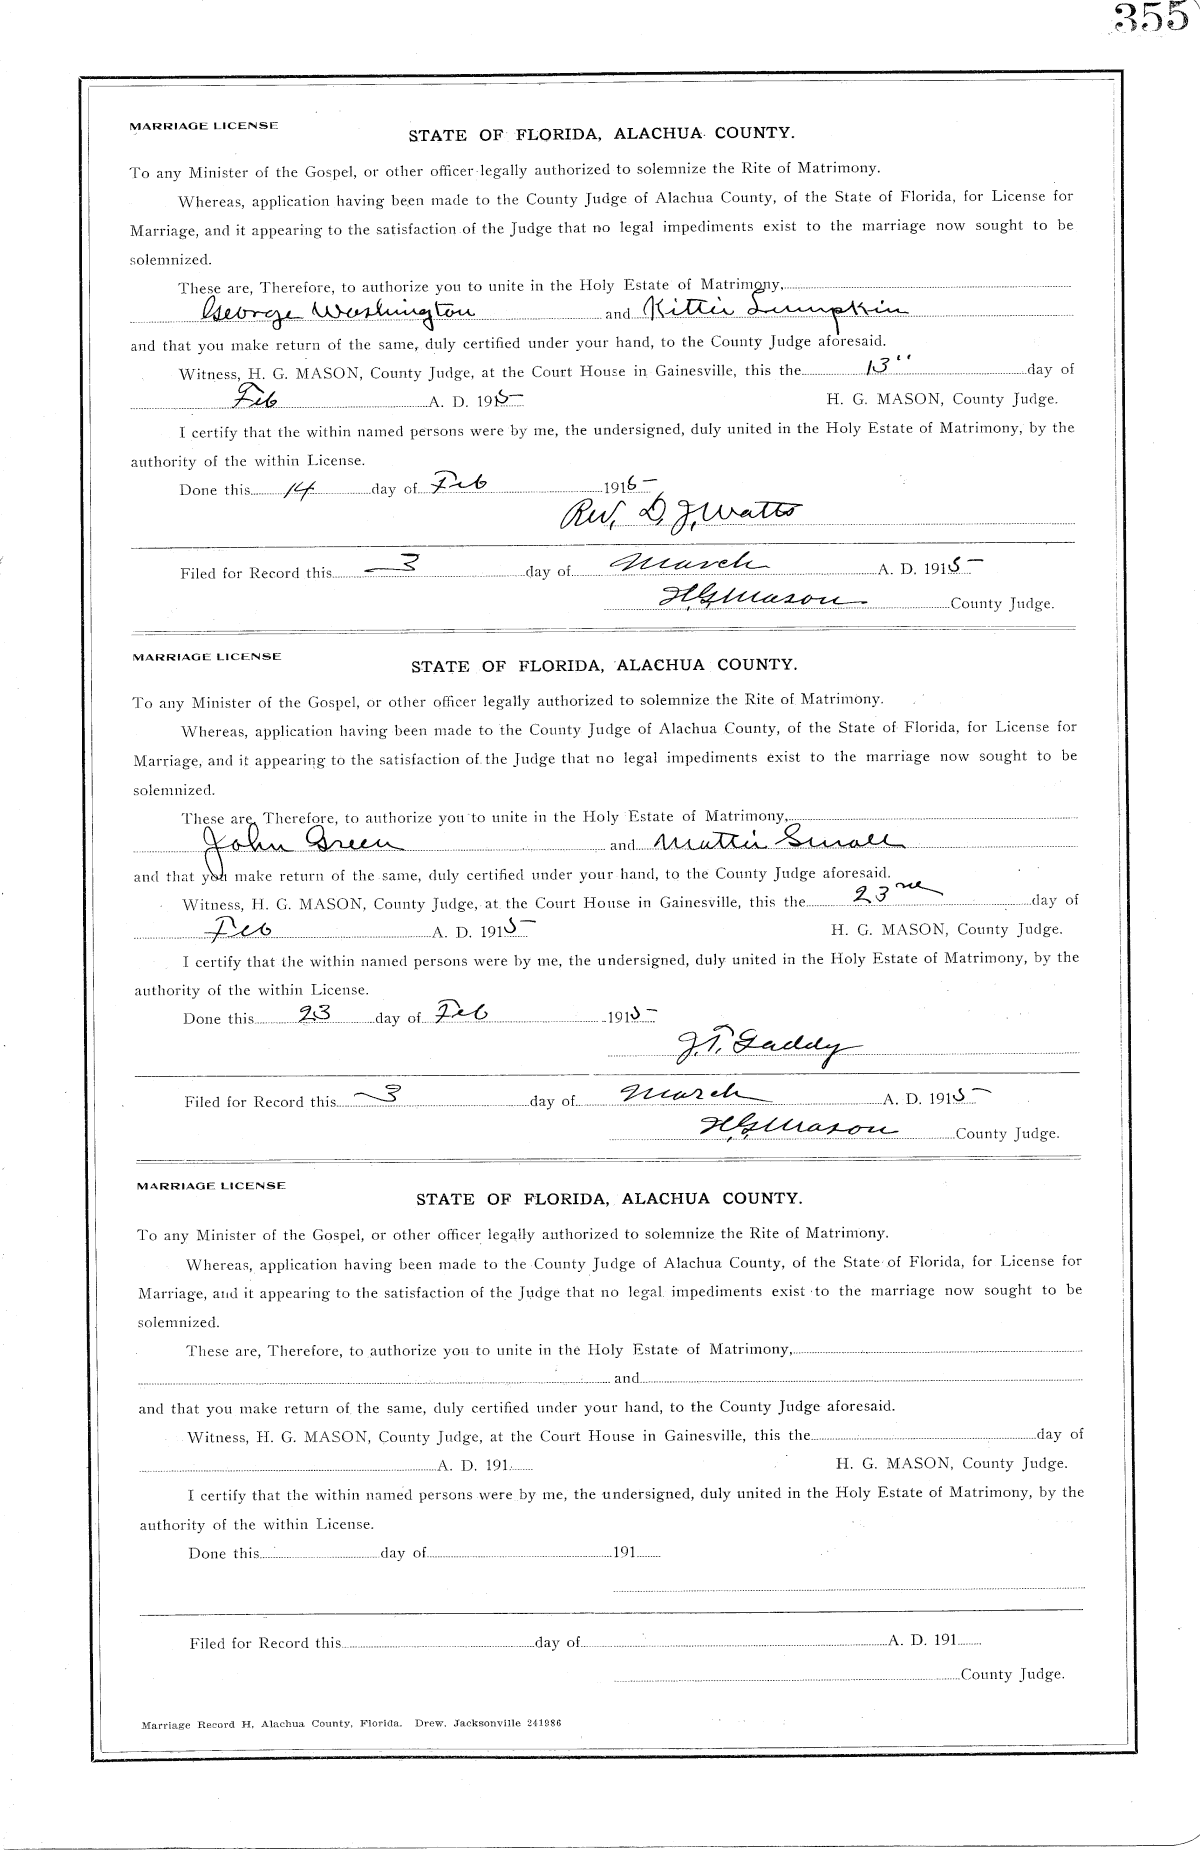 355
MARRIAGE LICENSE
STATE OF FLORIDA, ALACHUA COUNTY.
To any Minister of the Gospel, or other officer legally authorized to solemnize the Rite of Matrimony.
Whereas, application having been made to the County Judge of Alachua County, of the State of Florida, for License for
Marriage, and it appearing to the satisfaction of the Judge that no legal impediments exist to the marriage now sought to be
solemnized.
These are, Therefore, to authorize you to unite in the Holy Estate of Matrimony,
George Washington and Kittie Lumpkin
and that you make return of the same, duly certified under your hand, to the County Judge aforesaid.
Witness, H. G. MASON, County Judge, at the Court House in Gainesville, this the 13" day of
Feb A. D. 1915 H. G. MASON, County Judge.
I certify that the within named persons were by me, the undersigned, duly united in the Holy Estate of Matrimony, by the
authority of the within License.
Done this 14 day of Feb 1915
Rev. D. J. Watts
Filed for Record this 3 day of March A. D. 1915
H. G. Mason County Judge.
MARRIAGE LICENSE
STATE OF FLORIDA, ALACHUA COUNTY.
To any Minister of the Gospel, or other officer legally authorized to solemnize the Rite of Matrimony.
Whereas, application having been made to the County Judge of Alachua County, of the State of Florida, for License for
Marriage, and it appearing to the satisfaction of the Judge that no legal impediments exist to the marriage now sought to be
solemnized.
These are, Therefore, to authorize you to unite in the Holy Estate of Matrimony,
John Green and Mattie Small
and that you make return of the same, duly certified under your hand, to the County Judge aforesaid.
Witness, H. G. MASON, County Judge, at the Court House in Gainesville, this the 23rd day of
Feb A. D. 1915 H. G. MASON, County Judge.
I certify that the within named persons were by me, the undersigned, duly united in the Holy Estate of Matrimony, by the
authority of the within License.
Done this 23 day of Feb 1915
J. T. Gaddy
Filed for Record this 3 day of March A. D. 1915
H. G. Mason County Judge.
MARRIAGE LICENSE
STATE OF FLORIDA, ALACHUA COUNTY.
To any Minister of the Gospel, or other officer legally authorized to solemnize the Rite of Matrimony.
Whereas, application having been made to the County Judge of Alachua County, of the State of Florida, for License for
Marriage, and it appearing to the satisfaction of the Judge that no legal impediments exist to the marriage now sought to be
solemnized.
These are, Therefore, to authorize you to unite in the Holy Estate of Matrimony,
and
and that you make return of the same, duly certified under your hand, to the County Judge aforesaid.
Witness, H. G. MASON, County Judge, at the Court House in Gainesville, this the day of
A. D. 191 H. G. MASON, County Judge.
I certify that the within named persons were by me, the undersigned, duly united in the Holy Estate of Matrimony, by the
authority of the within License.
Done this day of 191
Filed for Record this day of A. D. 191
County Judge.
Marriage Record H, Alachua County, Florida. Drew, Jacksonville 241986